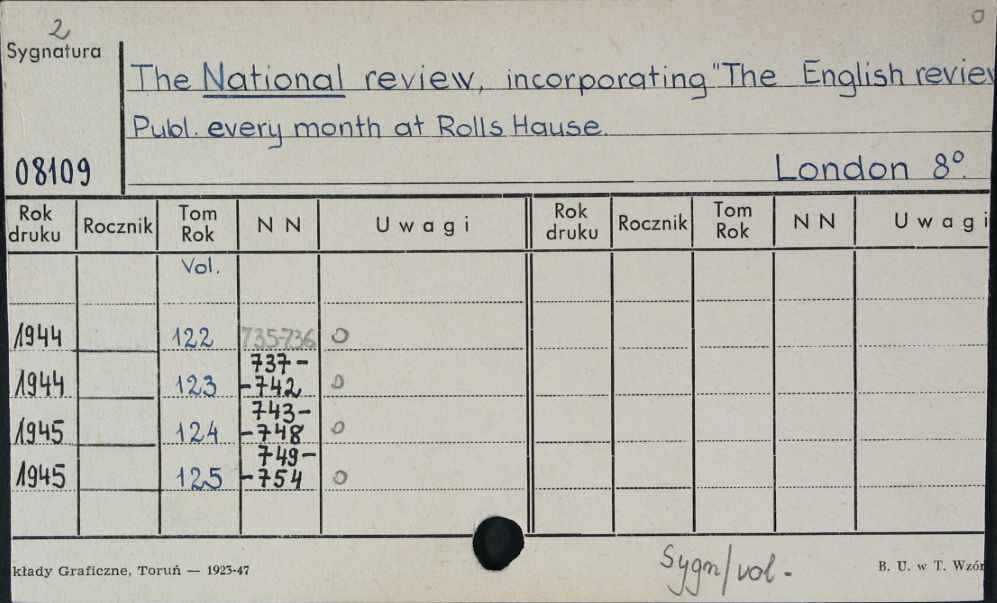 2 O
Sygnatura
The National review, incorporating "The English review
Publ. every month at Rolls Hause.
08109
London 8°.
Rok druku Rocznik Tom Rok N N Uwagi Rok druku Rocznik Tom Rok N N Uwagi
Vol.
1944 122 735-736 O
1944 123 737-742 O
1945 124 743-748 O
1945 125 749-754 O
Sygn/vol-
kłady Graficzne, Toruń — 1923-47 B. U. w T. Wzór